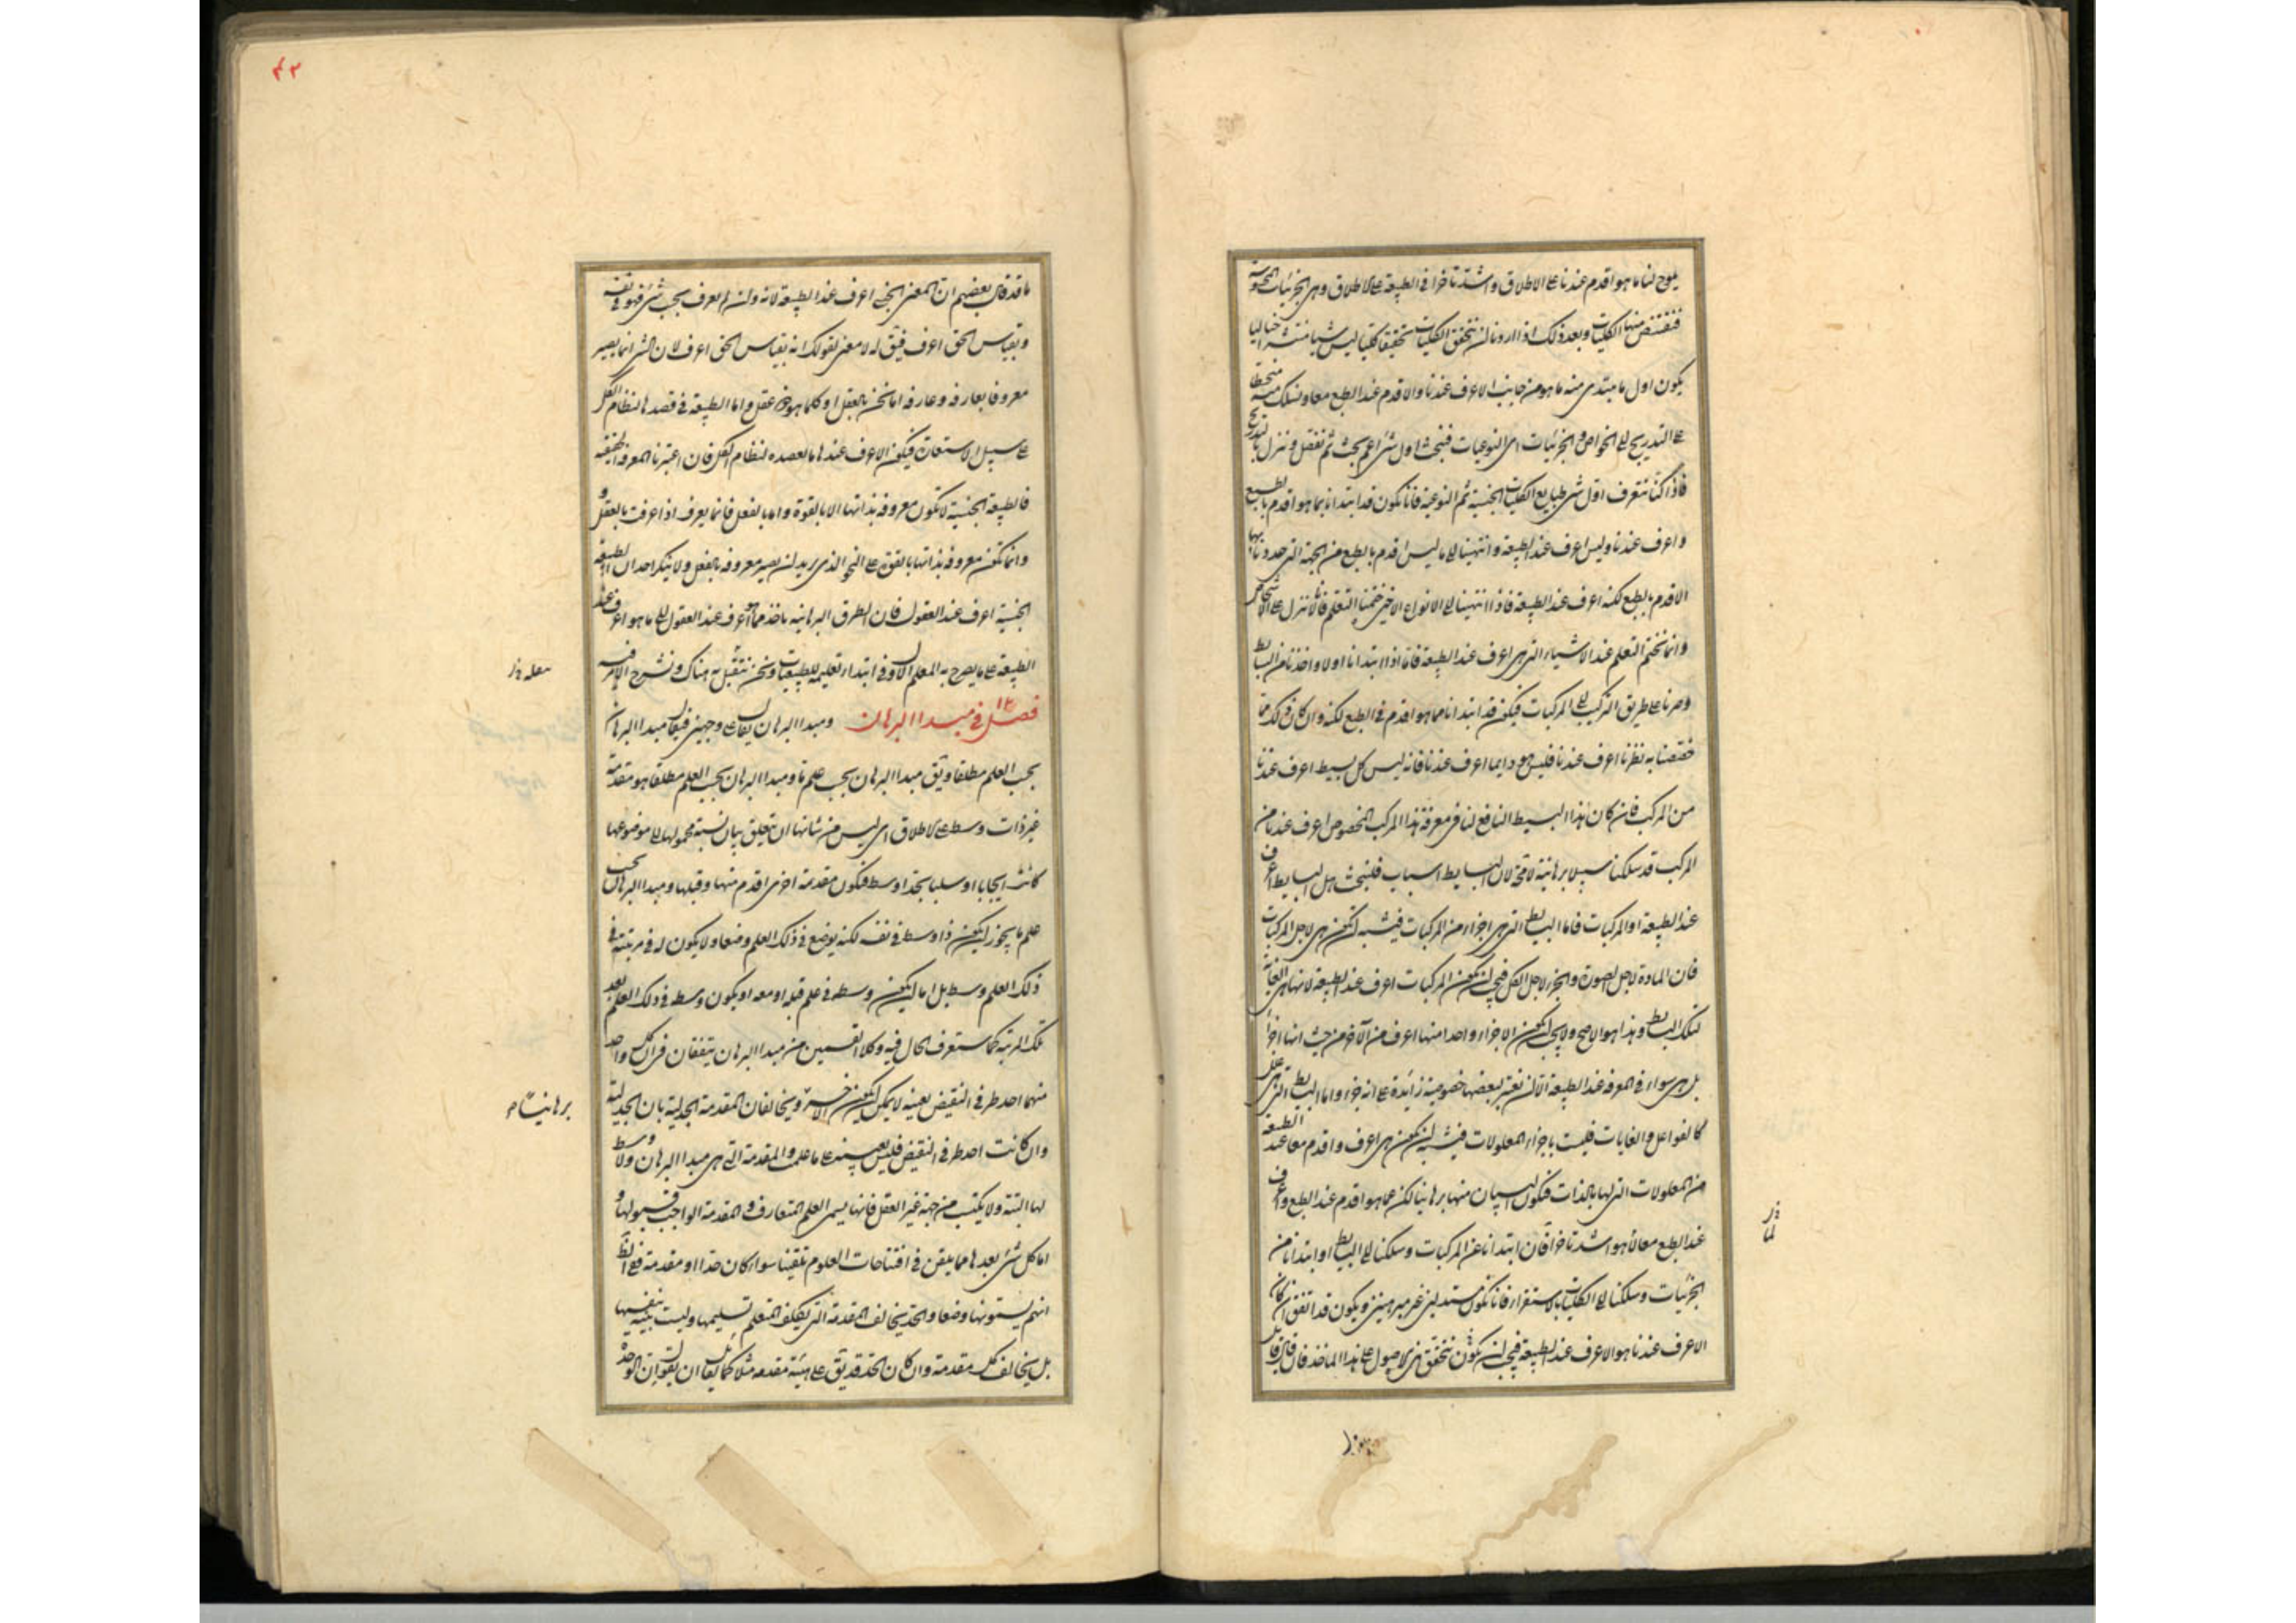 يلوح لنا ما هو اقدم عندنا على الاطلاق واشد تاخرا فى الطبيعة على الاطلاق وهى الجزئيات المحسوسة
فنقتنص منها الكليات وبعد ذلك اذا اردنا ان نتحقق الكليات تحقيقا كليا ليس شيا منتشرا خياليا
يكون اول ما نبتدى منه ما هو من جانب الاعرف عندنا والاقدم عند الطبع معا ونسلك منه منحطا
على التدريج الى الخواص والجزئيات اى النوعيات فنبحث اول شئ اعم بحث ثم نفصل وننزل بالتدريج
فاذا كنا نتعرف اول شى طبايع الكليات الجنسية ثم النوعية فانا نكون قد ابتدانا بما هو اقدم بالطبع
واعرف عندنا وليس اعرف عند الطبيعة وانتهينا الى ما ليس اقدم بالطبع من الجهة التى حددنا بها
الاقدم بالطبع لكنه اعرف عند الطبيعة فاذا انتهينا الى الانواع الاخيرة ختمنا التعلم فانا لا ننزل الى الاشخاص
وانما نختم التعلم عند الاشياء التى هى اعرف عند الطبيعة فانا اذا ابتدانا اولا واخذنا من البسايط
وصرنا على طريق التركيب الى المركبات فيكون قد ابتدانا مما هو اقدم فى الطبع لكنه وان كان ذلك مما
خصصنا به نظرنا اعرف عندنا فليس هو دايما اعرف عندنا فانه ليس كل بسيط اعرف عندنا
من المركب فان كان هذا البسيط النافع لنا فى معرفة هذا المركب المخصوص اعرف عندنا من
المركب قد سلكنا سبيلا برهانية لا محة لان البسايط اسباب فلنبحث هل البسايط اعرف
عند الطبيعة او المركبات فاما البسايط التى هى اجزاء من المركبات فيشبه ان تكون هى لاجل المركبات
فان المادة لاجل الصورة والجزء لاجل الكل فيجب ان تكون المركبات اعرف عند الطبيعة لانها هى الغاية
لتلك البسايط وهذا هو الاصح ولا يجب ان تكون الاجزاء واحدا منها اعرف من الآخر من حيث انها اجزا
بل هى سواء فى المعرفة عند الطبيعة الا ان نعتبر لبعضها خصوصية زائدة على انه جزء واما البسايط التى هى علل
كالفواعل والغايات فليست باجزاء المعلولات فيشبه ان تكون هى اعرف واقدم معا عند الطبيعة
من المعلولات التى لها بالذات فيكون البيان منها برهانيا لكن مما هو اقدم عند الطبع واعرف
عند الطبع معا لما هو اشد تاخرا فان ابتدانا عن المركبات وسلكنا الى البسايط او ابتدانا من
الجزئيات وسلكنا الى الكليات بالاستقراء فانا نكون مستدلين غير مبرهنين ويكون قد اتفق ان كان
الاعرف عندنا هو الاعرف عند الطبيعة فيجب ان تكون تتحقق هذه الاصول على هذا الماخذ فان قال قايل
٤٣
ما قد قال بعضهم ان المعنى الجنسى اعرف عند الطبيعة لانه وان لم يعرف بحسب شئ فهو فى نفسه
وبقياس الحق اعرف فيق له لا معنى لقولك انه بقياس الحق اعرف لان الشئ انما يصير
معروفا بعارفه وعارفه اما نحن بالعقل او كلما هو ذو عقل واما الطبيعة فى قصدها لنظام الكل
على سبيل الاستعارة فيكون الاعرف عندها ما تقصده لنظام الكل فان اعتبرنا المعرفة الحقيقة
فالطبيعة الجنسية لا تكون معروفة بذاتها الا بالقوة واما بالفعل فانما يعرف اذا عرفت بالعقل و
وانما تكون معروفة بذاتها بالقوة على النحو الذى يريد ان يصير معروفة بالفعل ولا ينكر احد ان الطبيعة
الجنسية اعرف عند العقول فان الطرق البرهانية ياخذ مما هو اعرف عند العقول الى ما هو اعرف عند
الطبيعة على ما يصرح به المعلم الاول فى ابتداء تعليمه للطبيعيات ونحن نتقبل به هناك ونشرح الامر فيه
فصل ١٢ فى مبدا البرهان ومبدا البرهان يقال على وجهين فيقال مبدا البرهان
بحسب العلم مطلقا ويق مبدا البرهان بحسب علم ما ومبدا البرهان بحسب العلم مطلقا هو مقدمة
غير ذات وسط على الاطلاق اى ليس من شانها ان يتعلق بيان نسبة محمولها الى موضوعها
كانت ايجابا او سلبا بحد اوسط فتكون مقدمة اخرى اقدم منها وقبلها ومبدا البرهان بحسب
علم ما يجوز ان يكون ذا وسط فى نفسه لكنه يوضع فى ذلك العلم وضعا ولا يكون له فى مرتبته فى
ذلك العلم وسط بل اما ان يكون وسطه فى علم قبله او معه او يكون وسطه فى ذلك العلم بعد
تلك المرتبة كما ستعرف الحال فيه وكلا القسمين من مبدا البرهان يتفقان فى ان كل واحد
منهما احد طرفى النقيض بعينه لا يمكن ان يكون الآخر ويخالفان المقدمة الجدلية بان الجدلية
وان كانت احد طرفى النقيض فليس بعينه على ما علمت والمقدمة التى هى مبدا البرهان ولا وسط
لها البتة ولا يكتسب من جهة غير العقل فانها يسمى العلم المتعارف والمقدمة الواجب قبولها و
اما كل شئ بعدها مما يلقن فى افتتاحات العلوم تلقينا سواء كان حدا او مقدمة فى الظ
انهم يسمونها وضعا والحد يخالف المقدمة التى يكلف المتعلم تسليمها وليست بينة بنفسها
بل يخالف كل مقدمة وان كان الحد قد يق على هيئة مقدمة مثلا كما يقال ان يقول ان الوحدة
برهانيتا م